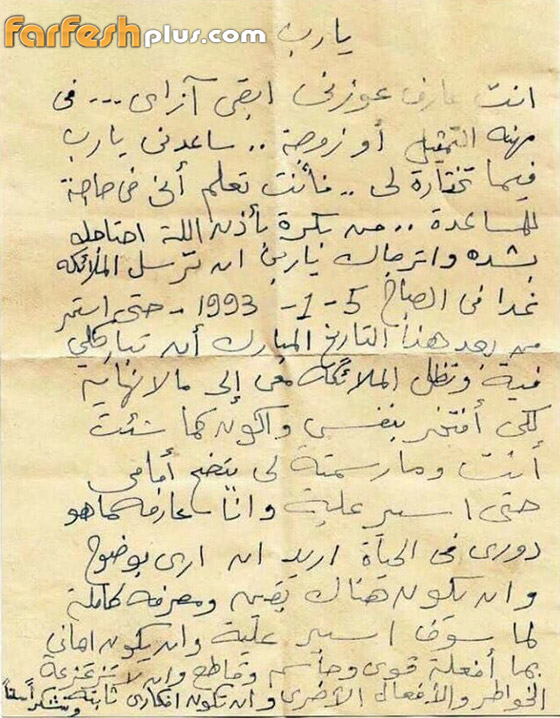 farfeshplus.com
يارب
انت عارف عوزنى ابقى آزاى ... فى
مهنه التمثيل أو زوجة .. ساعدنى يارب
فيما تختارة لى .. فأنت تعلم أنى فى حاجة
للمساعدة .. من بكرة بأذن اللة احتاجله
بشده واترجاك يارب ان ترسل الملائكه
غدا فى الصباح 5 - 1 - 1993 - حتى استمر
من بعد هذا التاريخ المبارك أن تباركلي
فية وتظل الملائكة معى إلى مالانهاية
لكى أفتخر بنفسى واكون كما شئت
أنت ومارسمتة لى يتضح أمامى
حتى اسير علية وانا عارفه ماهو
دورى فى الحياة اريد ان ارى بوضوح
وان يكون هناك يقين ومعرفه كاملة
لما سوف اسير علية وان يكون إيمانى
بما أفعلة قوى وحاسم وقاطع وان لا تزعزعة
الخواطر والأفعال الأخرى وان تكون افكارى ثابتة وشكراً